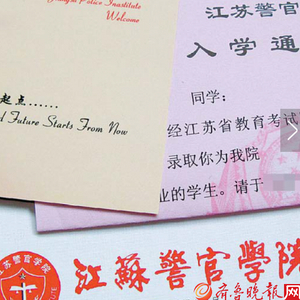 Jiangsu Police Institute
Welcome
起点......
Future Starts From Now
江苏警官
入学通
同学：
经江苏省教育考试
录取你为我院
业的学生。请于
江蘇警官學院
齐鲁晚报网